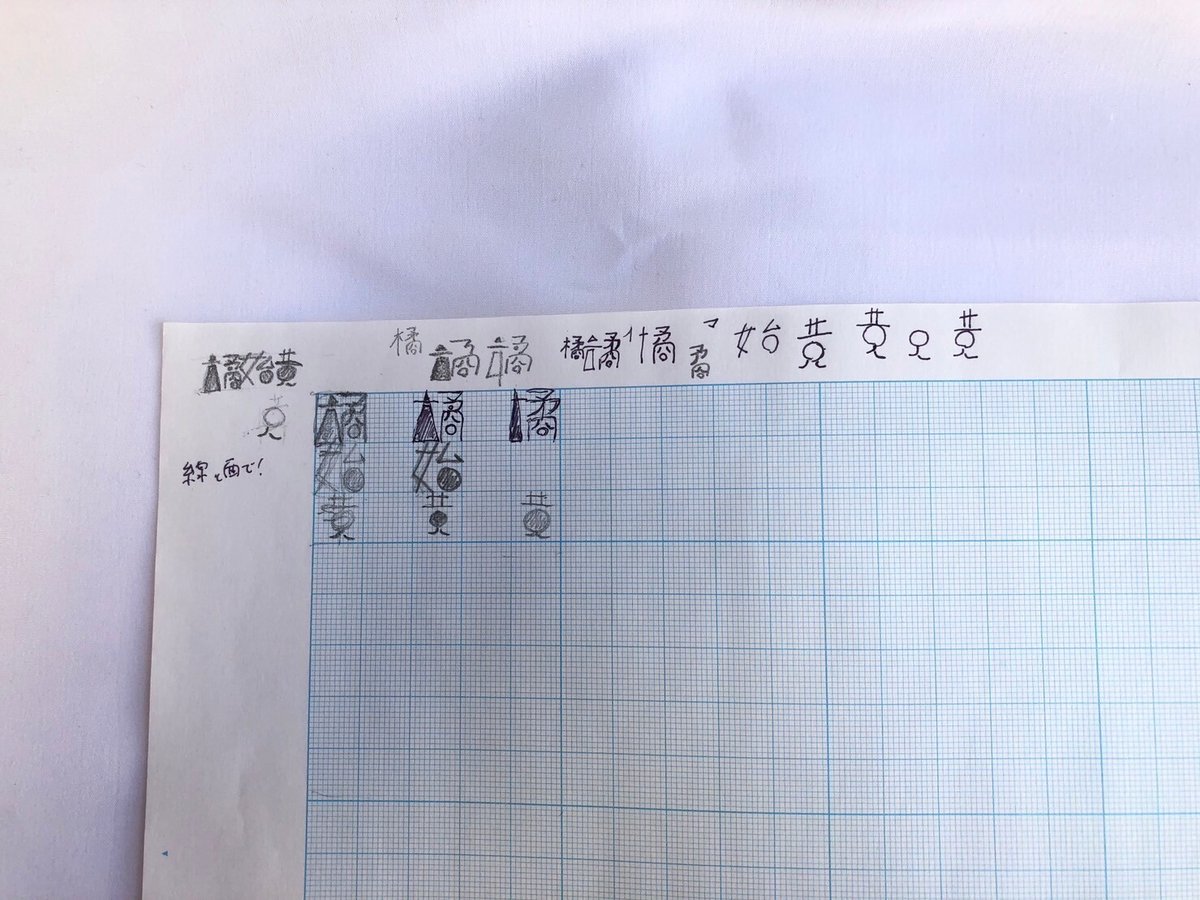 橘 橘 橘 橘 橘 橘 矞 マ 始 黄 黄 黄
橘始黄
黄
橘 橘 橘
線と面で!
始 始
黄 黄 黄